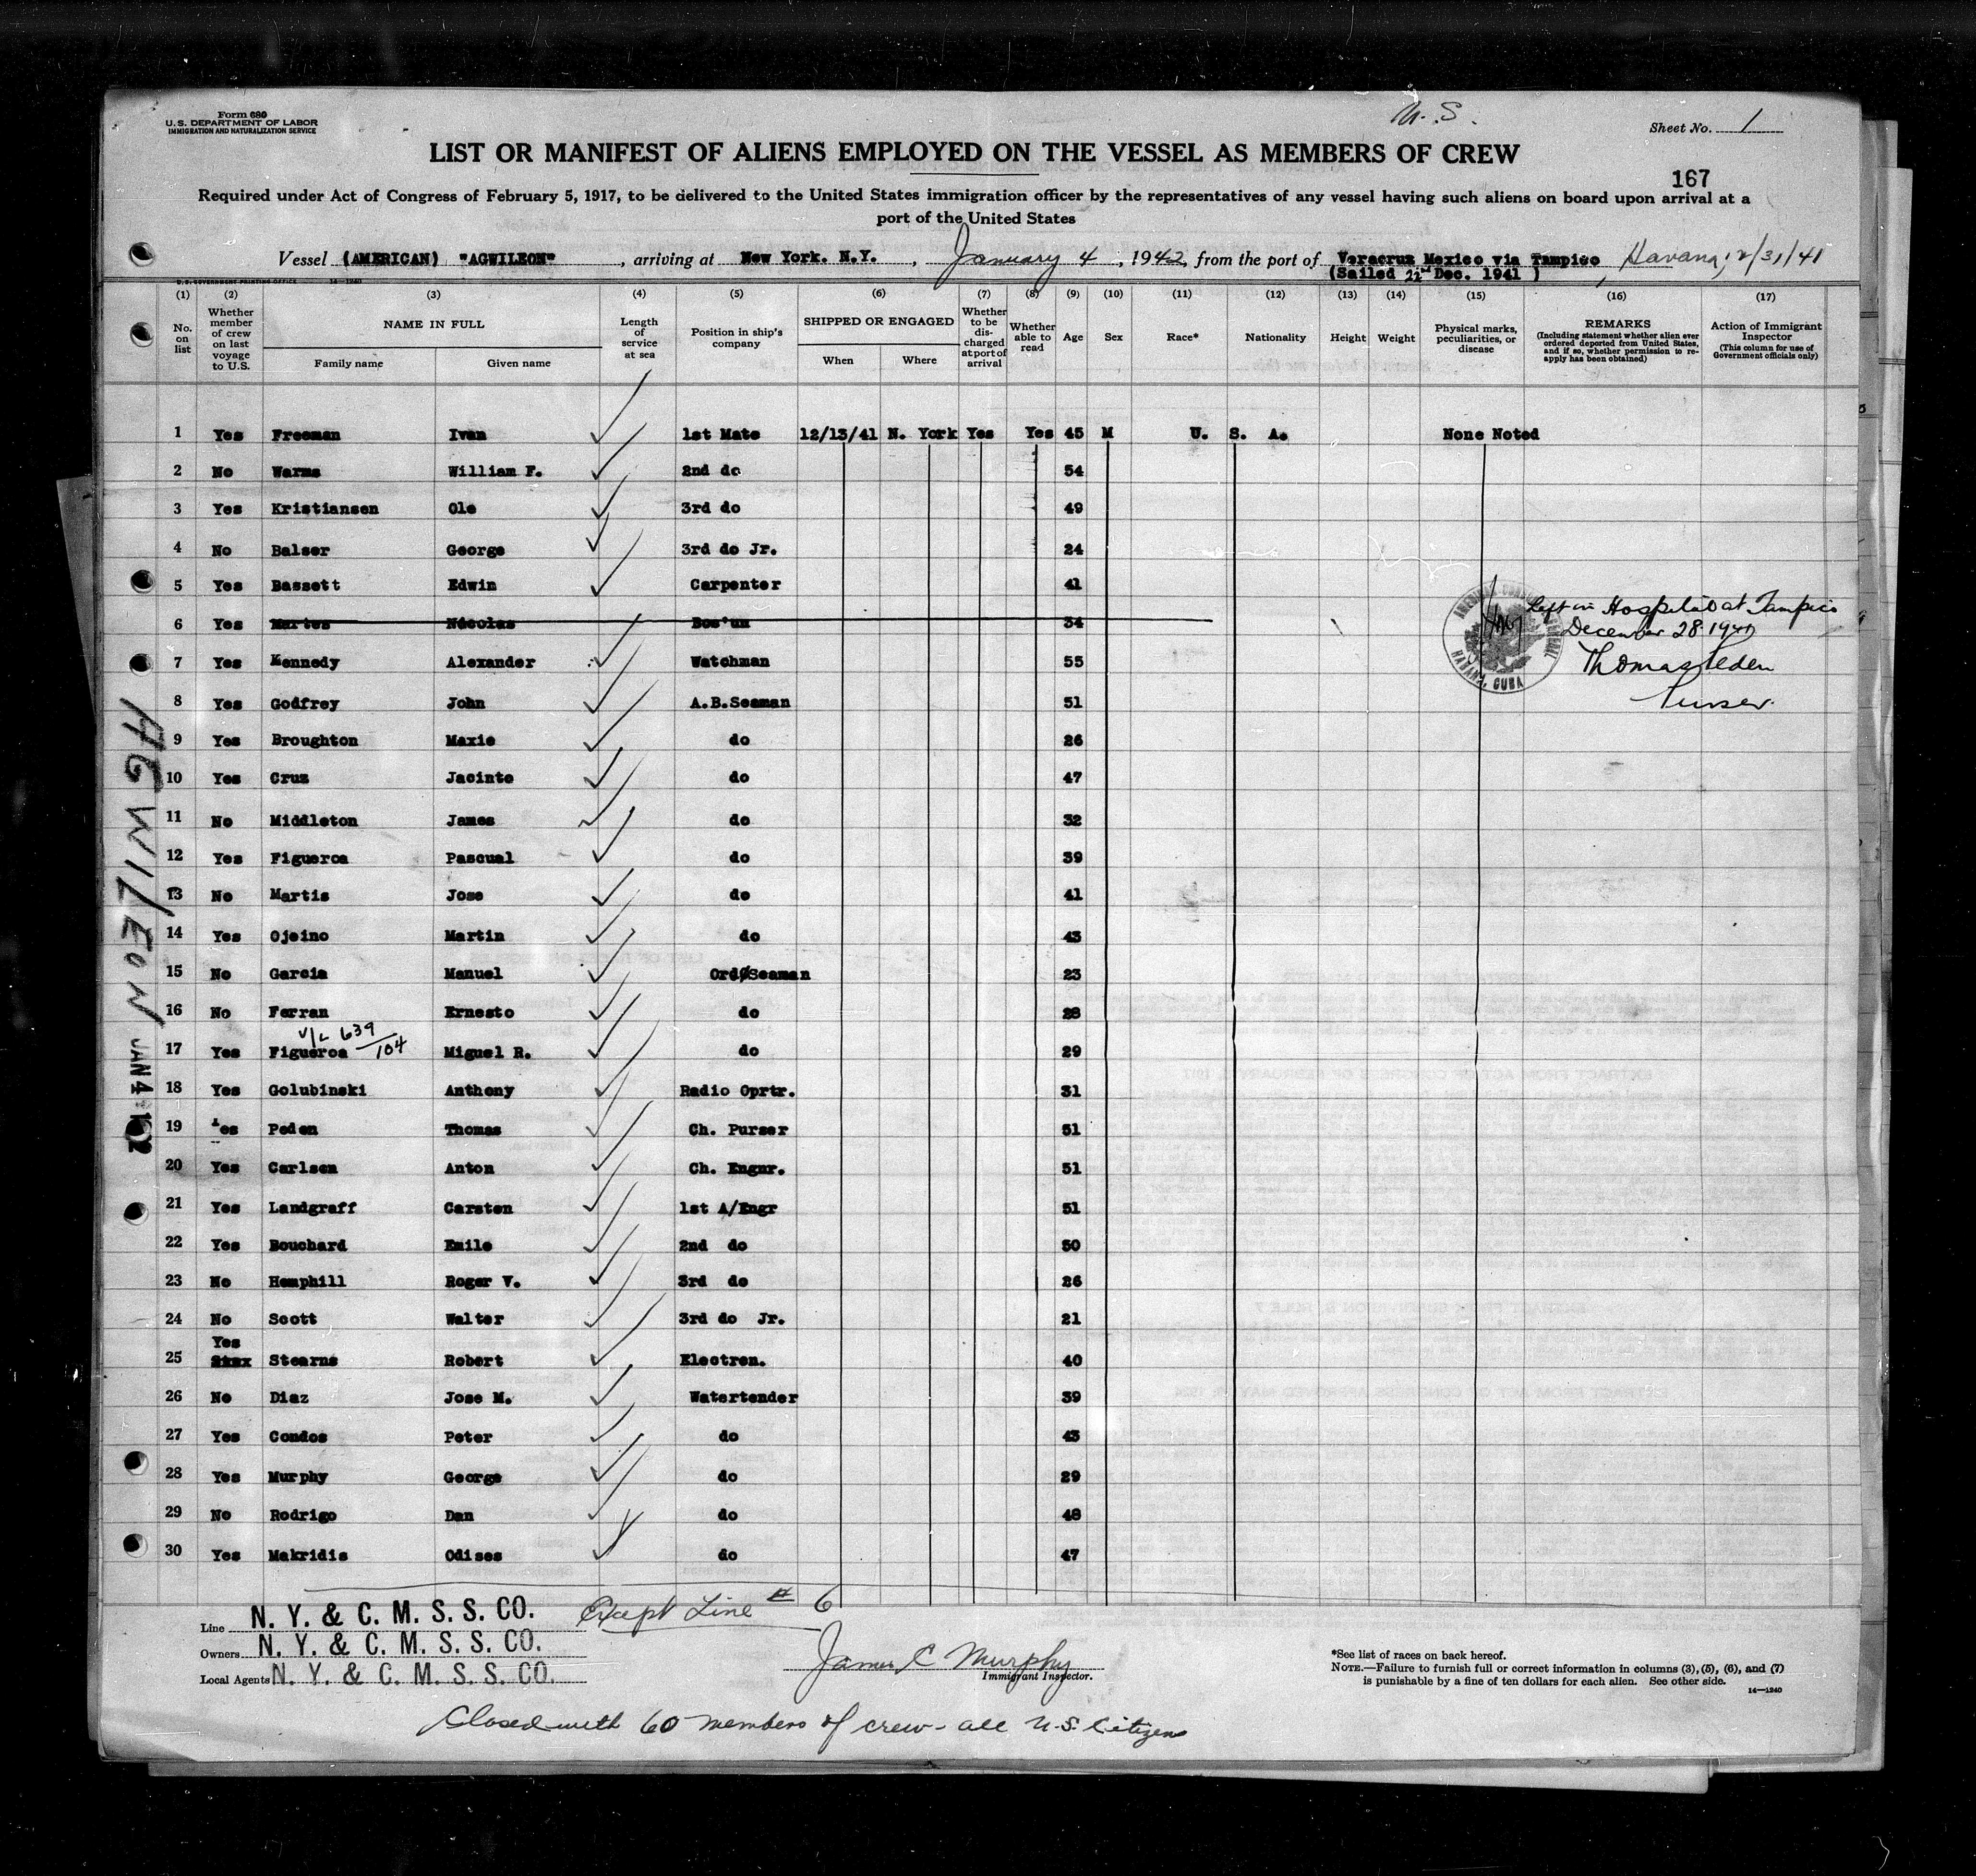 Form 680
U.S. DEPARTMENT OF LABOR
IMMIGRATION AND NATURALIZATION SERVICE
U.S.
Sheet No. 1
LIST OR MANIFEST OF ALIENS EMPLOYED ON THE VESSEL AS MEMBERS OF CREW
167
Required under Act of Congress of February 5, 1917, to be delivered to the United States immigration officer by the representatives of any vessel having such aliens on board upon arrival at a
port of the United States
Vessel (AMERICAN) "AGWILEON", arriving at New York. N.Y., January 4, 1942, from the port of Veracruz Mexico via Tampico, Havana, 12/31/41
(Sailed 22nd Dec. 1941 )
U.S. GOVERNMENT PRINTING OFFICE 14-1240
(1) (2) (3) (4) (5) (6) (7) (8) (9) (10) (11) (12) (13) (14) (15) (16) (17)
No. on list
Whether member of crew on last voyage to U.S.
NAME IN FULL
Family name Given name
Length of service at sea
Position in ship's company
SHIPPED OR ENGAGED
When Where
Whether to be discharged at port of arrival
Whether able to read
Age
Sex
Race*
Nationality
Height
Weight
Physical marks, peculiarities, or disease
REMARKS
(Including statement whether alien ever ordered deported from United States, and if so, whether permission to reapply has been obtained)
Action of Immigrant Inspector
(This column for use of Government officials only)
1 Yes Freeman Ivan 1st Mate 12/13/41 N. York Yes Yes 45 M U. S. A. None Noted
2 No Warms William F. 2nd do 54
3 Yes Kristiansen Ole 3rd do 49
4 No Balser George 3rd do Jr. 24
5 Yes Bassett Edwin Carpenter 41
6 Yes Martes Nicolas Bos'un 34 Left in Hospital at Tampico
December 28 1941
Thomas Peden
Purser
AMERICAN CONSULATE GENERAL
HABANA, CUBA
7 Yes Kennedy Alexander Watchman 55
8 Yes Godfrey John A.B.Seaman 51
9 Yes Broughton Maxie do 26
10 Yes Cruz Jacinto do 47
11 No Middleton James do 32
12 Yes Figueroa Pascual do 39
13 No Martis Jose do 41
14 Yes Ojeino Martin do 43
15 No Garcia Manuel Ord Seaman 23
16 No Ferran Ernesto do 28
V/L 639/104
17 Yes Figueroa Miguel R. do 29
18 Yes Golubinski Anthony Radio Oprtr. 31
19 Yes Peden Thomas Ch. Purser 51
20 Yes Carlsen Anton Ch. Engnr. 51
21 Yes Landgraff Carsten 1st A/Engr 51
22 Yes Bouchard Emile 2nd do 50
23 No Hemphill Roger V. 3rd do 26
24 No Scott Walter 3rd do Jr. 21
25 Yes Stearns Robert Electren. 40
26 No Diaz Jose M. Watertender 39
27 Yes Condos Peter do 43
28 Yes Murphy George do 29
29 No Rodrigo Dan do 48
30 Yes Makridis Odises do 47
AGWILEON JAN 4 1942
Except Line # 6
Line N. Y. & C. M. S. S. CO.
Owners N. Y. & C. M. S. S. CO.
Local Agents N. Y. & C. M. S. S. CO.
James C Murphy
Immigrant Inspector.
*See list of races on back hereof.
NOTE.—Failure to furnish full or correct information in columns (3), (5), (6), and (7)
is punishable by a fine of ten dollars for each alien. See other side.
14-1240
Closed with 60 members of crew - all U.S. Citizens